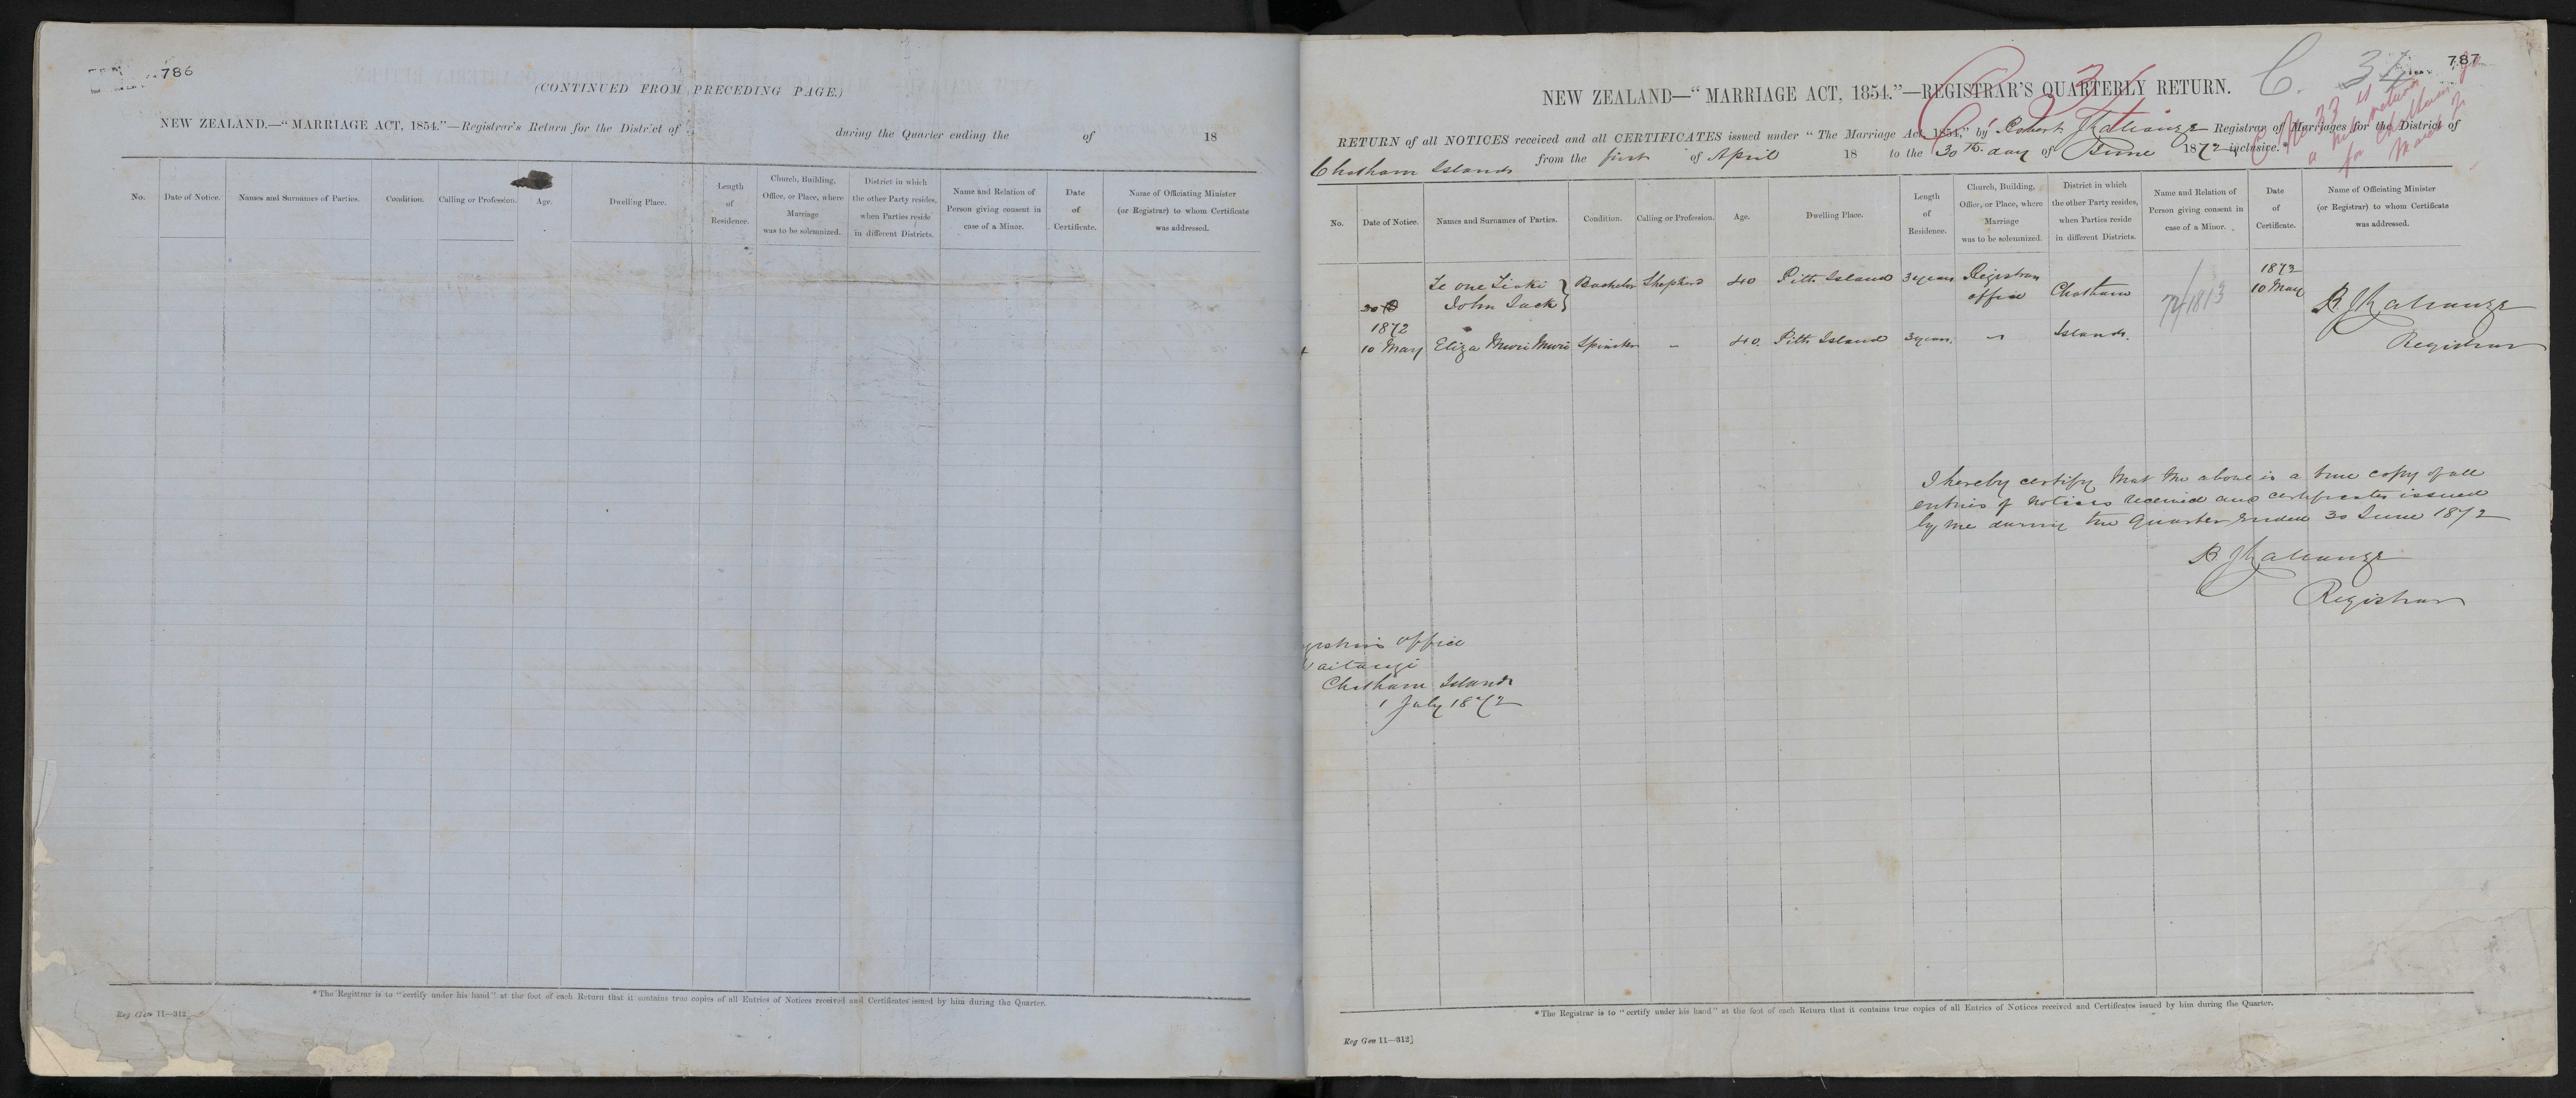 786
(CONTINUED FROM PRECEDING PAGE.)
NEW ZEALAND.—"MARRIAGE ACT, 1854."—Registrar's Return for the District of during the Quarter ending the of 18
No. Date of Notice. Names and Surnames of Parties. Condition. Calling or Profession. Age. Dwelling Place. Length of Residence. Church, Building, Office, or Place, where Marriage was to be solemnized. District in which the other Party resides, when Parties reside in different Districts. Name and Relation of Person giving consent in case of a Minor. Date of Certificate. Name of Officiating Minister (or Registrar) to whom Certificate was addressed.
*The Registrar is to "certify under his hand" at the foot of each Return that it contains true copies of all Entries of Notices received and Certificates issued by him during the Quarter.
Reg Gen 11—312
787
C. 34
C 34
NEW ZEALAND—"MARRIAGE ACT, 1854."—REGISTRAR'S QUARTERLY RETURN.
No 33 is
a nil return
for Chatham Is
March
RETURN of all NOTICES received and all CERTIFICATES issued under "The Marriage Act, 1854," by Robert Registrar of Marriages for the District of
Chatham Islands from the first of April 18 to the 30th. day of June 1872 inclusive.*
No. Date of Notice. Names and Surnames of Parties. Condition. Calling or Profession. Age. Dwelling Place. Length of Residence. Church, Building, Office, or Place, where Marriage was to be solemnized. District in which the other Party resides, when Parties reside in different Districts. Name and Relation of Person giving consent in case of a Minor. Date of Certificate. Name of Officiating Minister (or Registrar) to whom Certificate was addressed.
1872
Te one Tioki } Bachelor Shepherd 40 Pitts Island 3 years Registrars Chatham 72/1813 10 May
John Jack office
1872
10 May Eliza Muri Muri Spinster " 40 Pitts Island 3 years " Islands.
Registrar
I hereby certify that the above is a true copy of all
entries of notices received and certificates issued
by me during the quarter ended 30 June 1872
Registrar
office
Waitangi
Chatham Islands
1 July 1872
*The Registrar is to "certify under his hand" at the foot of each Return that it contains true copies of all Entries of Notices received and Certificates issued by him during the Quarter.
Reg Gen 11—312]